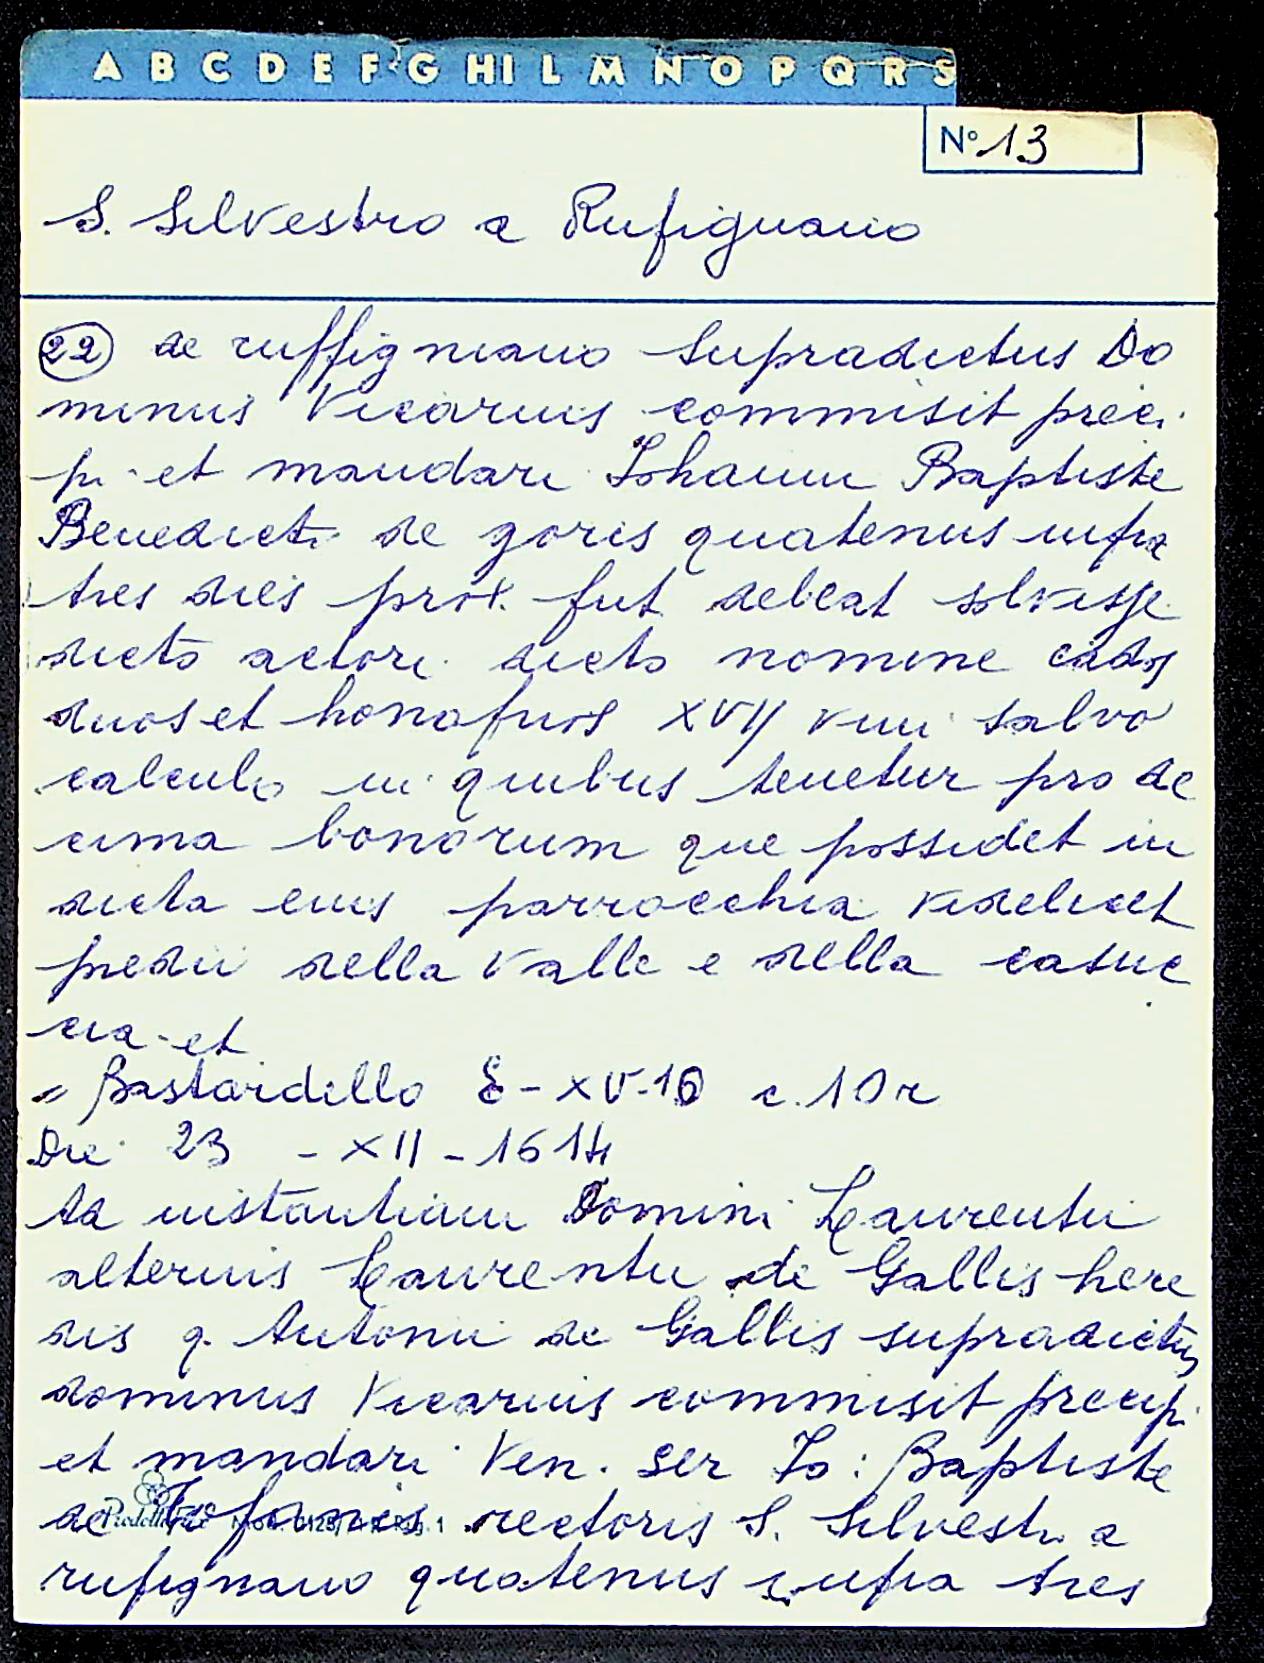 A B C D E F G H I L M N O P Q R S
N° 13
S. Silvestro a Rufignano
22 de ruffigniano Supradictus Do
minus Vicarius commisit preci
pi et mandari Johanni Baptiste
Benedicti de goris quatenus infra
tres dies prox. fut. debeat solvisse
dicto actori dicto nomine
duos et XVII vini salvo
calculo in quibus tenetur pro de
cima bonorum que possidet in
dicta eius parrocchia videlicet
predii della Valle e della casuc
cia et
= Bastardello E - XV-16 c. 10 r
Die 23 - XII - 1614
Ad instantiam Domini Laurentii
alterius Laurentii de Gallis here
dis q. Antonii de Gallis supradictus
dominus Vicarius commisit precipi
et mandari Ven. ser Jo: Baptiste
de rectoris S. Silvestri a
rufignano quatenus infra tres